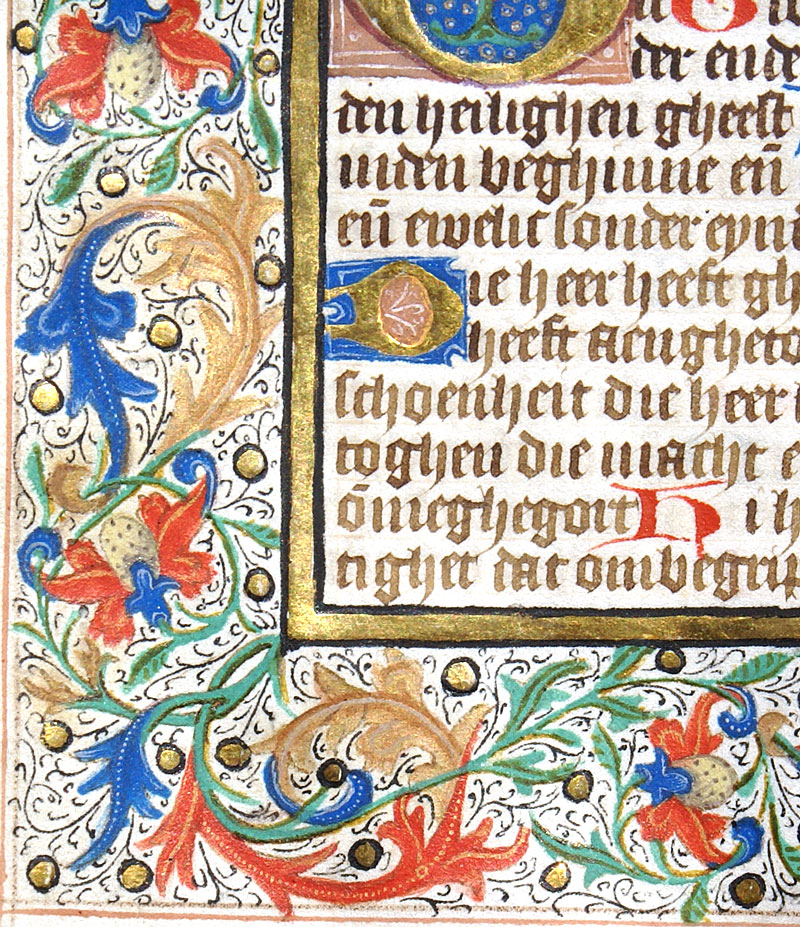 der ende
den heilighen gheest
uiden beghinne en̄
en̄ ewelic sonder eyn
ie heer heeft gh
heeft aenghet
schoenheit die heer
toghen die macht e
ōmeghegort H i h
tighet dat ombegrip